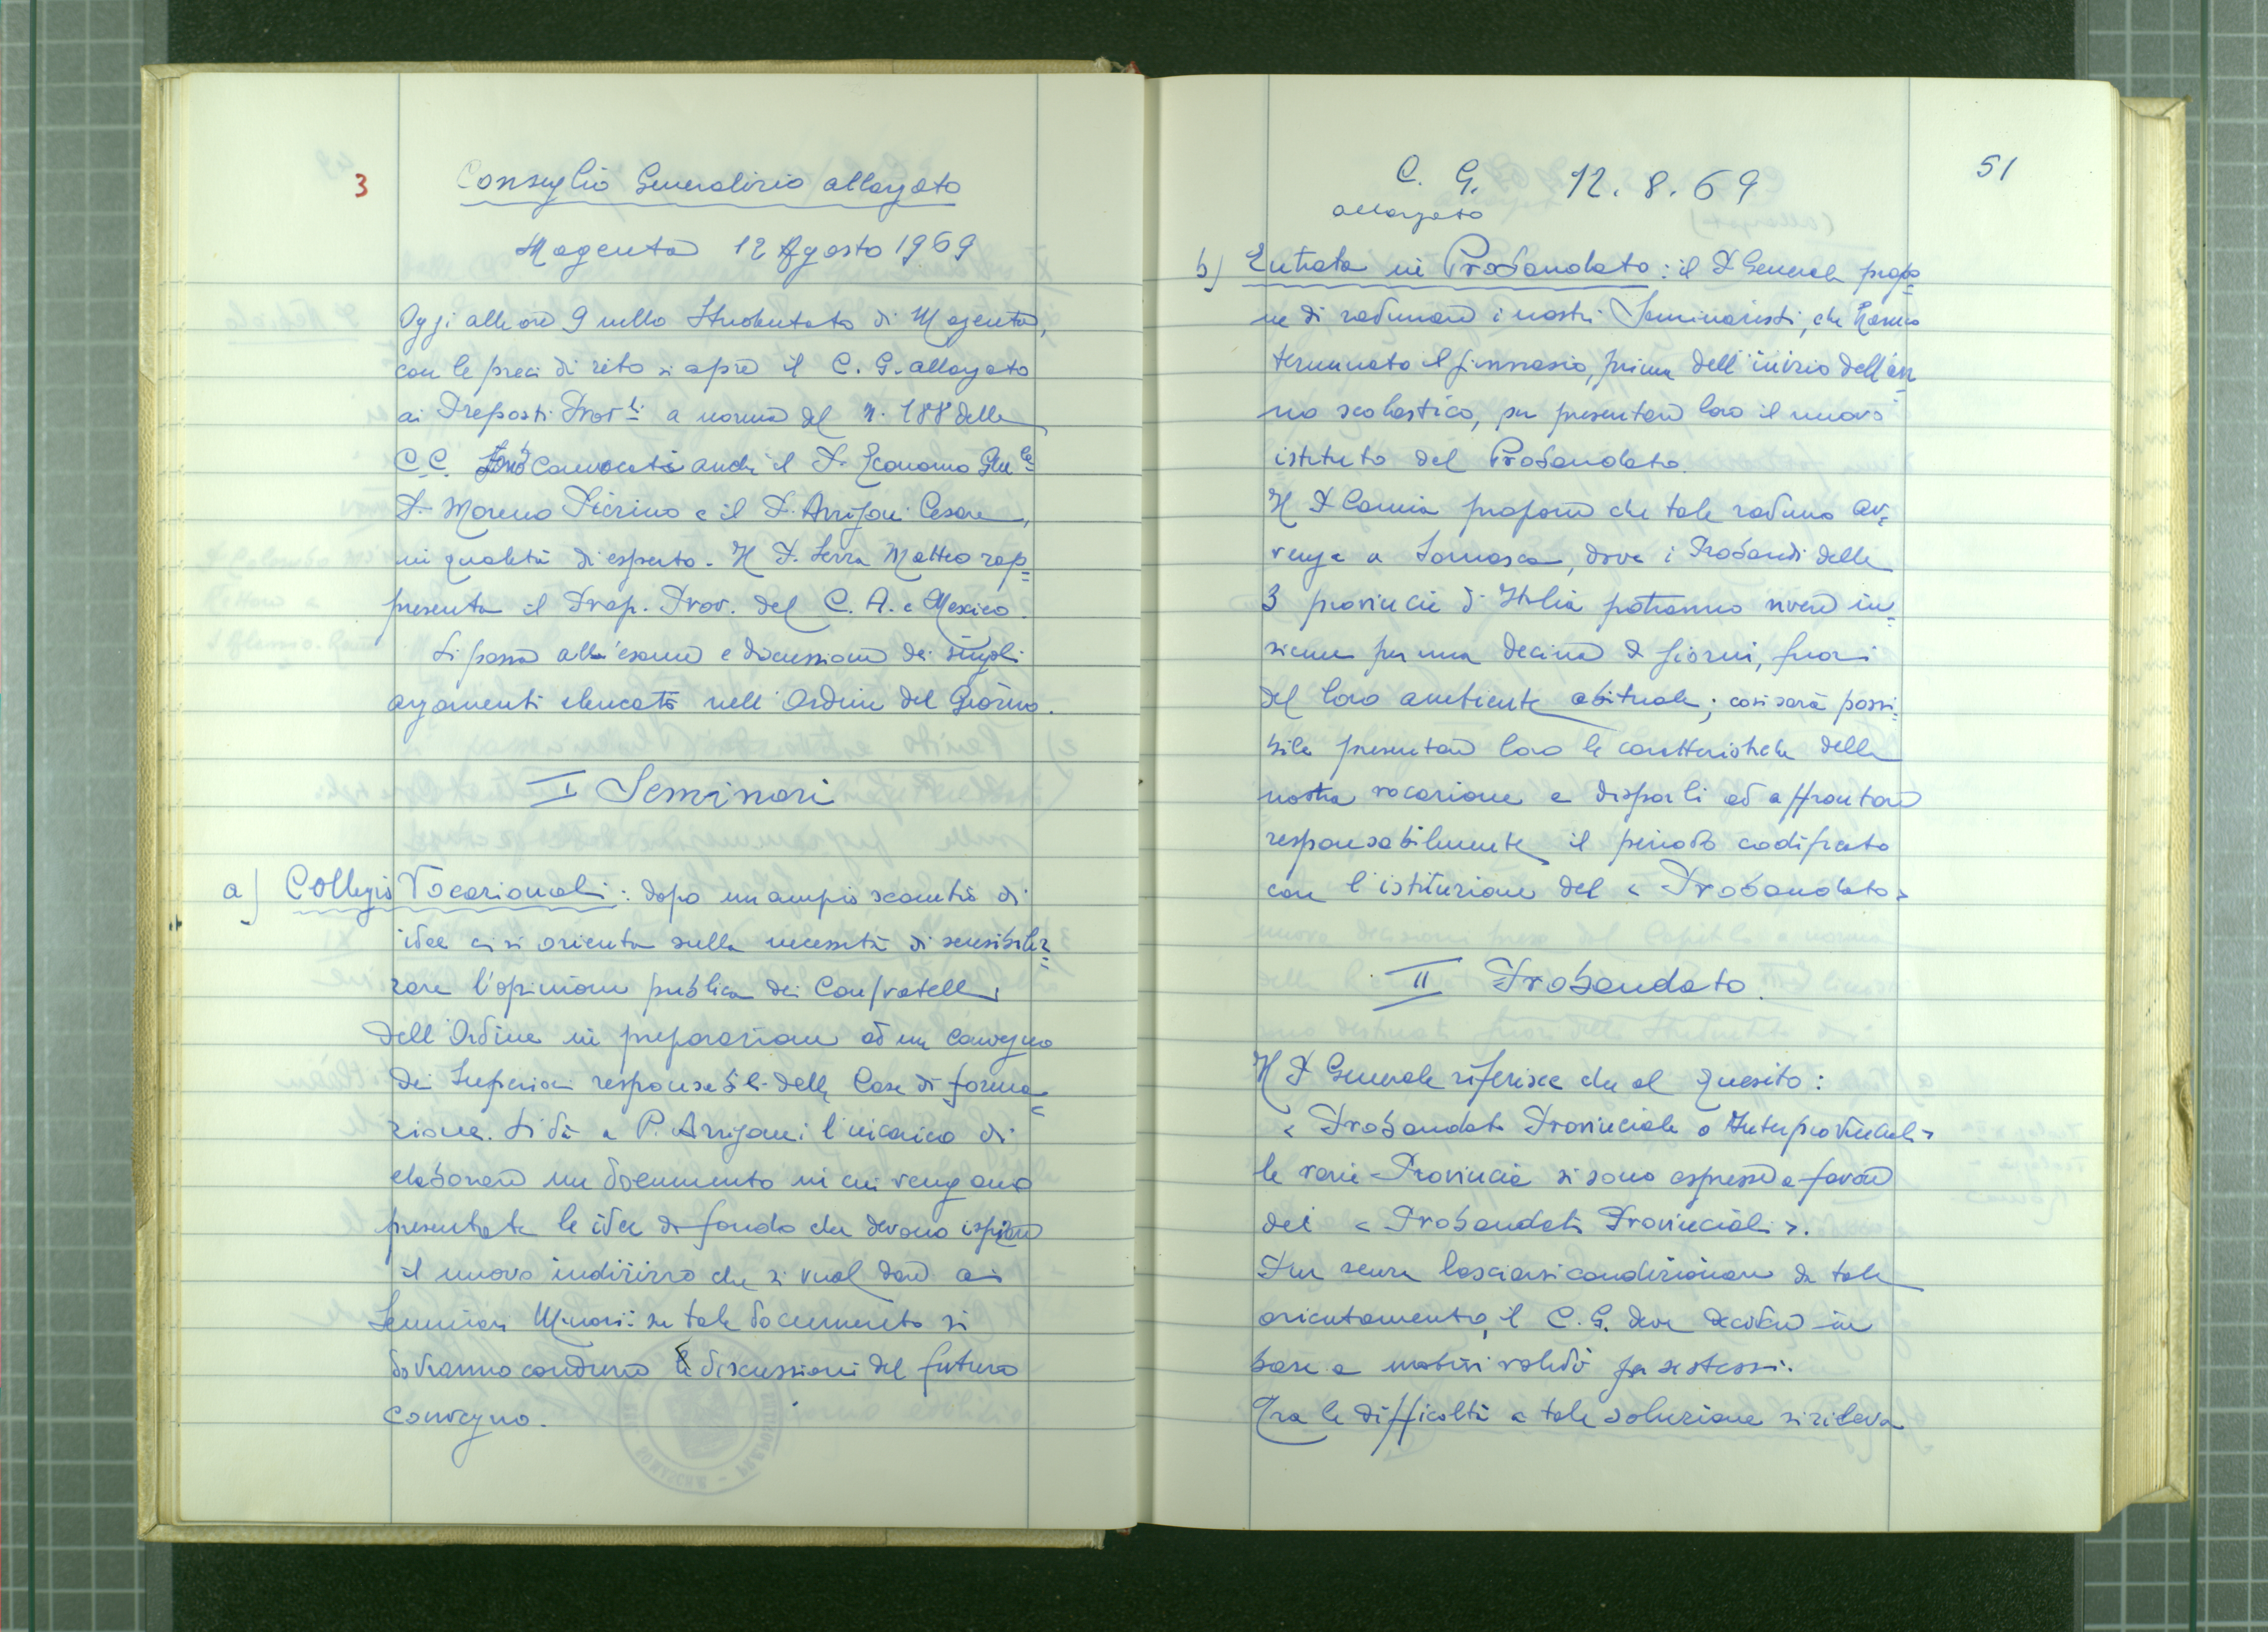 3
Consiglio Generalizio allargato
Magenta 12 Agosto 1969
Oggi alle ore 9 nello Studentato di Magenta,
con le preci di rito si apre il C. G. allargato
ai Preposti Prov.li a norma del n. 188 delle
C.C. Sono convocati anche il P. Economo Gen.le
P. Moreno Pierino e il P. Arrigoni Cesare,
in qualità di esperto. Il P. Serra Matteo rap=
presenta il Prep. Prov. del C. A. e Mexico.
Si passa all'esame e discussione dei singoli
argomenti elencati nell'Ordine del Giorno.
I Seminari
a) Collegi Vocazionali: dopo un ampio scambio di
idee ci si orienta sulla necessità di sensibiliz=
zare l'opinione pubblica dei Confratelli
dell'Ordine in preparazione ad un convegno
dei Superiori responsabili delle Case di forma=
zione. Si dà a P. Arrigoni l'incarico di
elaborare un documento in cui vengano
presentate le idee di fondo che devono ispirare
il nuovo indirizzo che si vuol dare ai
Seminari Minori: su tale documento si
dovranno condurre le discussioni del futuro
convegno.
51
C. G. 12. 8. 69
allargato
b) Entrata in Probandato: il P. Generale propo=
ne di radunare i nostri Seminaristi, che hanno
terminato il ginnasio, prima dell'inizio dell'an
no scolastico, per presentare loro il nuovo
istituto del Probandato.
Il P. Camia propone che tale raduno av=
venga a Somasca, dove i Probandi delle
3 provincie d'Italia potranno vivere in=
sieme per una decina di giorni, fuori
del loro ambiente abituale; così sarà possi=
bile presentare loro le caratteristiche della
nostra vocazione e disporli ad affrontare
responsabilmente il periodo codificato
con l'istituzione del «Probandato»
II Probandato.
Il P. Generale riferisce che al quesito:
«Probandato Provinciale o Interprovinciale»
le varie Provincie si sono espresse a favore
dei «Probandati Provinciali».
Pur senza lasciarsi condizionare da tale
orientamento, il C. G. deve decidere in
base a motivi validi per se stessi.
Tra le difficoltà a tale soluzione si rileva